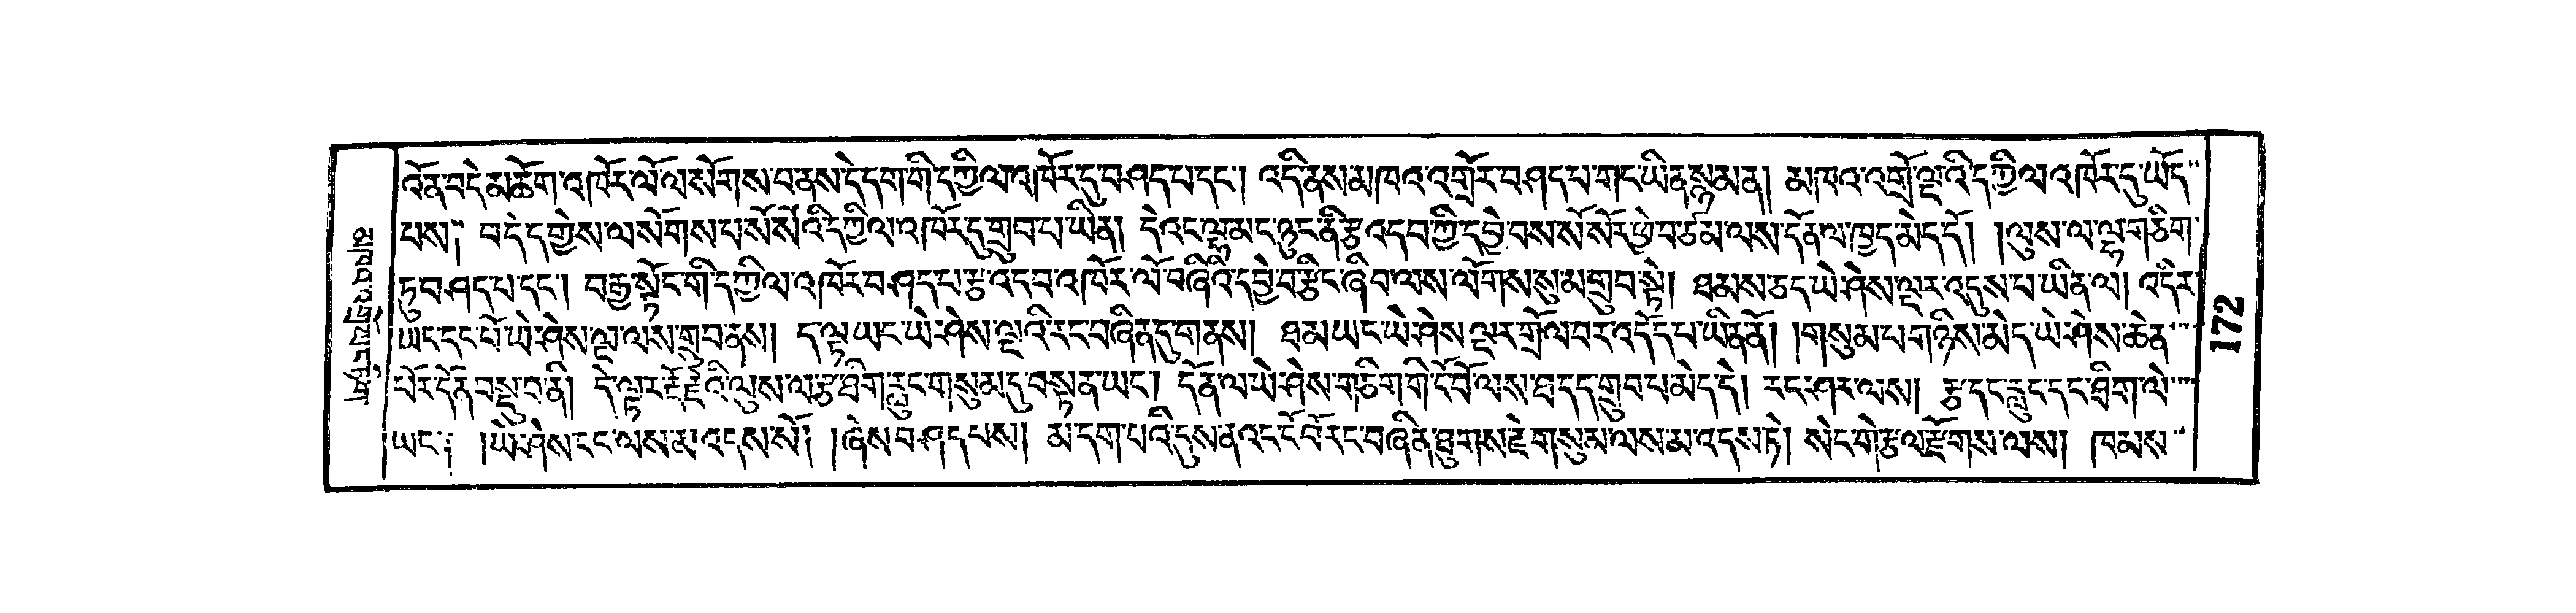 འོན་བདེ་མཆོག་འཁོར་ལོ་ལ་སོགས་བནས་དེ་དག་གི་དཀྱིལ་འཁོར་དུ་བཤད་པ་དང་། འདིནས་མཁའ་འགྲོར་བཤད་པ་གང་ཡིནསྙམན། མཁའ་འགྲོ་ལྔའི་དཀྱིལ་འཁོར་དུ་ཡོད་
པས༑ བདེ་དགྱེས་ལ་སོགས་པ་སོ་སོའི་དཀྱིལ་འཁོར་དུ་གྲུབ་པ་ཡིན། དེའང་ལྷ་མང་ཉུང་ནི་རྩ་འདབ་ཀྱི་དབྱེ་བས་སོ་སོར་ཕྱེ་བཙམ་ལས་དོན་ལ་ཁྱད་མེད་དོ། །ལུས་ལ་ལྷ་གཅིག་
ཏུ་བཤད་པ་དང་། བརྒྱ་སྟོང་གི་དཀྱིལ་འཁོར་བཤད་པ་རྩ་འདབ་འཁོར་ལོ་བཞིའི་དབྱེ་བརྩི་ང་ཞིབ་ལས་ལོགས་སུ་མ་གྲུབ་སྟེ། ཐམས་ཅད་ཡེ་ཤེས་ལྔར་འདུས་པ་ཡིན་ལ། འདིར་
ཡང་དང་པོ་ཡེ་ཤེས་ལྔ་ལས་གྲུབ་ནས། ད་ལྟ་ཡང་ཡེ་ཤེས་ལྔའི་རང་བཞིན་དུ་གནས། ཐམ་ཡང་ཡེ་ཤེས་ལྔར་གྲོལ་བར་འདོད་པ་ཡིན་ནོ། །གསུམ་པ་གཉིས་མེད་ཡེ་ཤེས་ཆེན་
པོར་དོན་བསྡུ་བ་ནི། དེ་ལྟར་རྡོ་རྗེའི་ལུས་ལ་རྩ་ཐིག་རླུང་གསུམ་དུ་བསྟན་ཡང་། དོན་ལ་ཡེ་ཤེས་གཅིག་གི་ངོ་བོ་ལས་ཐ་དད་གྲུབ་པ་མེད་དེ། རང་ཤར་ལས། རྩ་དང་རླུང་དང་ཐིག་ལེ་
ཡང་༑ །ཡེ་ཤེས་ངང་ལས་མ་འདས་སོ༑ །ཞེས་བཤད་པས། མ་དག་པའི་དུས་ནའང་ངོ་བོ་རང་བཞིན་ཐུགས་རྗེ་གསུམ་ལས་མ་འདས་ཏེ། སེང་གེ་རྩལ་རྫོགས་ལས། ཁམས་
172